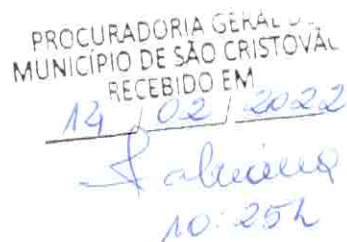 PROCURADORIA GERAL D
MUNICÍPIO DE SÃO CRISTOVÃ
RECEBIDO EM
14 / 02 / 2022
10:25h